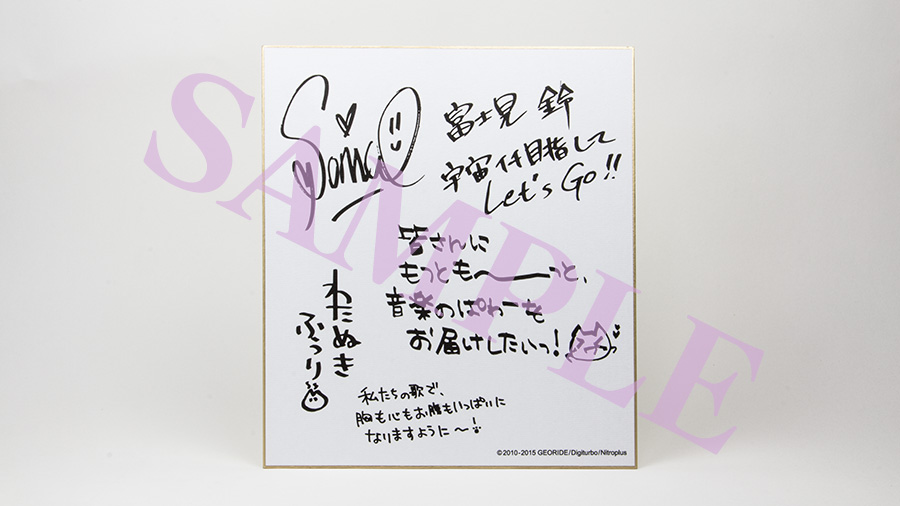 富士見 鈴
宇宙イチ目指して
Let's Go!!
皆さんに
もっとも〜っと、
音楽のぱわーも
お届けしたいっ!
わたぬき
ふっり
私たちの歌で、
胸も心もお腹もいっぱいに
なりますように〜!
©2010-2015 GEORIDE/Digiturbo/Nitroplus
SAMPLE